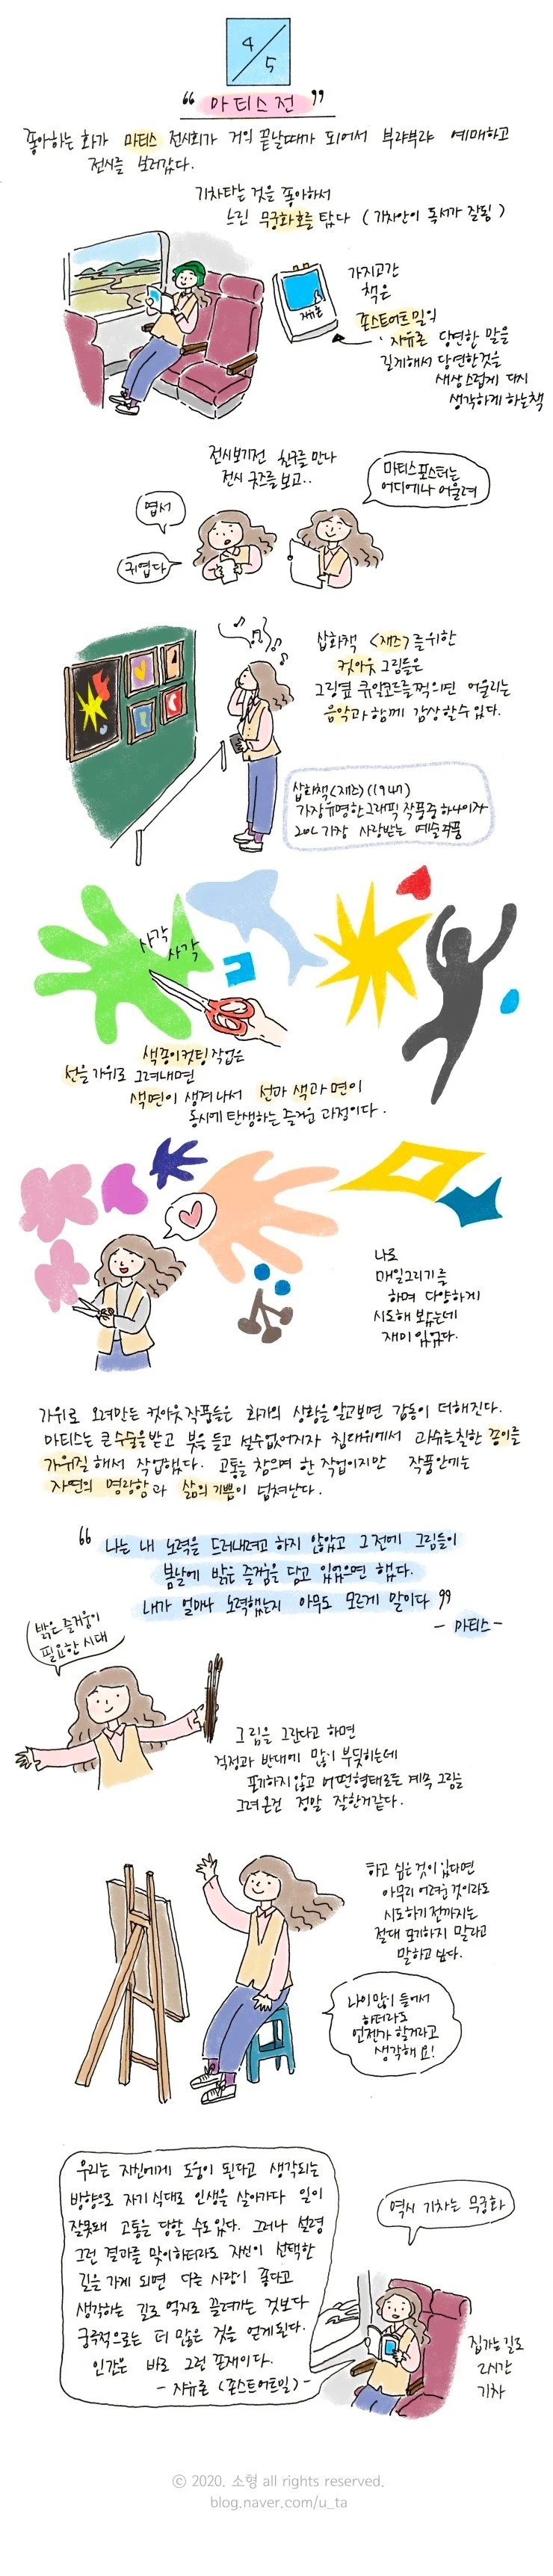 4/5
“ 마티스전 ”
좋아하는 화가 마티스 전시회가 거의 끝날때가 되어서 부랴부랴 예매하고
전시를 보러갔다.
기차타는 것을 좋아해서
느린 무궁화호를 탔다 ( 기차안이 독서가 잘됨 )
자유론
가지고간
책은
존스튜어트 밀의
자유론 당연한 말을
길게해서 당연한것을
새삼스럽게 다시
생각하게 하는책
전시보기전 친구를 만나
전시 굿즈를 보고..
마티스포스터는
어디에나 어울려
엽서
귀엽다
삽화책 <재즈>를위한
컷아웃 그림들은
그림옆 큐알코드를찍으면 어울리는
음악과 함께 감상할수있다.
삽화책<재즈>(1947)
가장유명한그래픽 작품중 하나이자
20C 가장 사랑받는 예술작품
사각
사각
색종이컷팅작업은
선을 가위로 그려내면
색면이 생겨나서 선과 색과 면이
동시에 탄생하는 즐거운 과정이다.
나도
매일그리기를
하며 다양하게
시도해 봤는데
재미 있었다.
가위로 오려만든 컷아웃작품들은 화가의 상황을알고보면 감동이 더해진다.
마티스는 큰수술을받고 붓을 들고 설수없어지자 침대위에서 과슈를칠한 종이를
가위질 해서 작업했다. 고통을 참으며 한 작업이지만 작품안에는
자연의 명랑함과 삶의 기쁨이 넘쳐난다.
“ 나는 내 노력을 드러내려고 하지 않았고 그전에 그림들이
봄날에 밝은 즐거움을 담고 있었으면 했다.
내가 얼마나 노력했는지 아무도 모르게 말이다 ”
- 마티스 -
밝은 즐거움이
필요한 시대
그림을 그린다고 하면
걱정과 반대에 많이 부딪히는데
포기하지않고 어떤형태로든 계속 그림을
그려온건 정말 잘한거같다.
하고 싶은것이 있다면
아무리 어려운 것이라도
시도하기전까지는
절대 포기하지 말라고
말하고 싶다.
나이많이 들어서
하더라도
언젠가 할거라고
생각해요!
우리는 자신에게 도움이 된다고 생각되는
방향으로 자기식대로 인생을 살아가다 일이
잘못돼 고통을 당할 수도있다. 그러나 설령
그런 결과를 맞이하더라도 자신이 선택한
길을 가게 되면 다른 사람이 좋다고
생각하는 길로 억지로 끌려가는 것보다
궁극적으로는 더 많은 것을 얻게된다.
인간은 바로 그런 존재이다.
- 자유론 (존스튜어트밀) -
역시 기차는 무궁화
집가는길도
2시간
기차
© 2020. 소형 all rights reserved.
blog.naver.com/u_ta